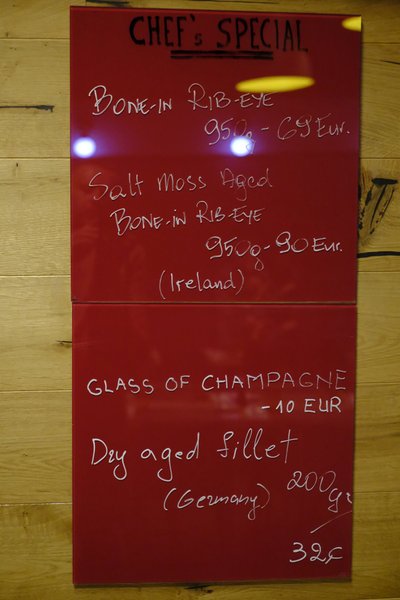 CHEF's SPECIAL
BONE-IN RIB-EYE
950g - 69 Eur.
Salt Moss Aged
BONE-IN RIB-EYE
950g - 90 Eur.
(Ireland)
GLASS OF CHAMPAGNE
- 10 EUR
Dry aged fillet
(Germany) 200gr
32€